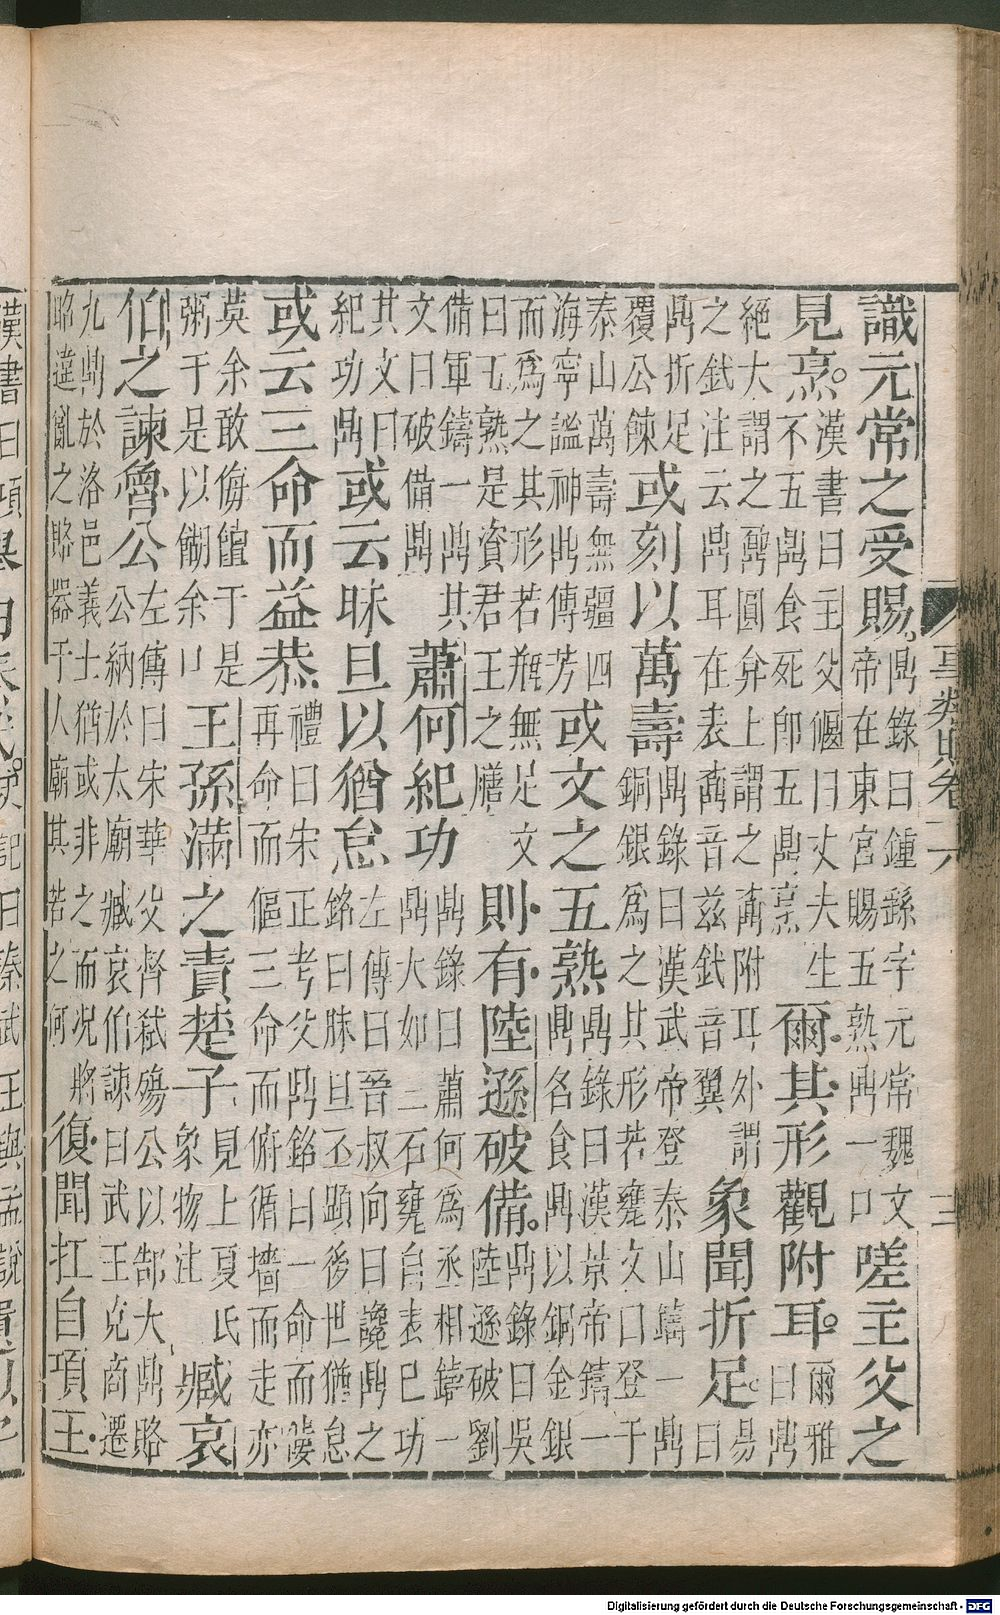 事類賦卷十六 三
識元常之受賜。鼎錄曰鍾繇字元常魏文帝在東宮賜五熟鼎一口嗟主父之
見烹。漢書曰主父偃曰丈夫生不五鼎食死即五鼎烹爾其形觀附耳。爾雅曰鼎
絕大謂之鼐圓弇上謂之鼒附耳外謂之釴注云鼎耳在表鼒音茲釴音翼象聞折足。易曰
鼎折足覆公餗或刻以萬壽鼎錄曰漢武帝登泰山鑄一鼎銅銀為之其形若甕文曰登于
泰山萬壽無疆四海寧謐神鼎傳芳或文之五熟鼎錄曰漢景帝鑄一鼎名食鼎以銅金銀
而為之其形若瓶無足文曰五熟是資君王之膳則有陸遜破備。鼎錄曰吳陸遜破劉
備軍鑄一鼎其文曰破備鼎蕭何紀功鼎錄曰蕭何為丞相鑄一鼎大如二石甕自表己功
其文曰紀功鼎或云昧旦以猶怠左傳曰晉叔向曰讒鼎之銘曰昧旦丕顯後世猶怠
或云三命而益恭禮曰宋正考父鼎銘曰一命而僂再命而傴三命而俯循墻而走亦
莫余敢侮饘于是粥于是以餬余口王孫滿之責楚子見上夏氏象物注臧哀
伯之諫魯公左傳曰宋華父督弒殤公以郜大鼎賂公納於太廟臧哀伯諫曰武王克商遷
九鼎於洛邑義士猶或非之而況將昭違亂之賂器于人廟其若之何復聞扛自項王
Digitalisierung gefördert durch die Deutsche Forschungsgemeinschaft - DFG